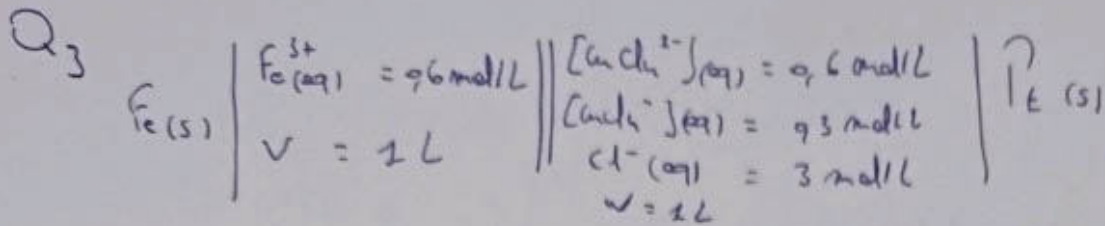 Q3
Fe(s) | Fe3+(aq) = 0,6 mol/L || [CuCl4 2-](aq) = 0,6 mol/L | Pt (s)
[CuCl4-](aq) = 0,3 mol/L
V = 1 L
Cl-(aq) = 3 mol/L
V = 1L